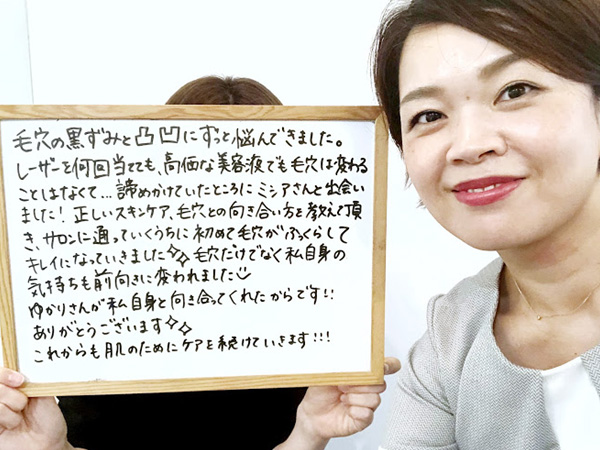 毛穴の黒ずみと凸凹にずっと悩んできました。
レーザーを何回当てても、高価な美容液でも毛穴は変わる
ことはなくて...諦めかけていたところにミシアさんと出会い
ました！正しいスキンケア、毛穴との向き合い方を教えて頂
き、サロンに通っていくうちに初めて毛穴がふっくらして
キレイになっていきました✧✧毛穴だけでなく私自身の
気持ちも前向きに変われました
ゆかりさんが私自身と向き合ってくれたからです!!
ありがとうございます✧✧
これからも肌のためにケアを続けていきます!!!